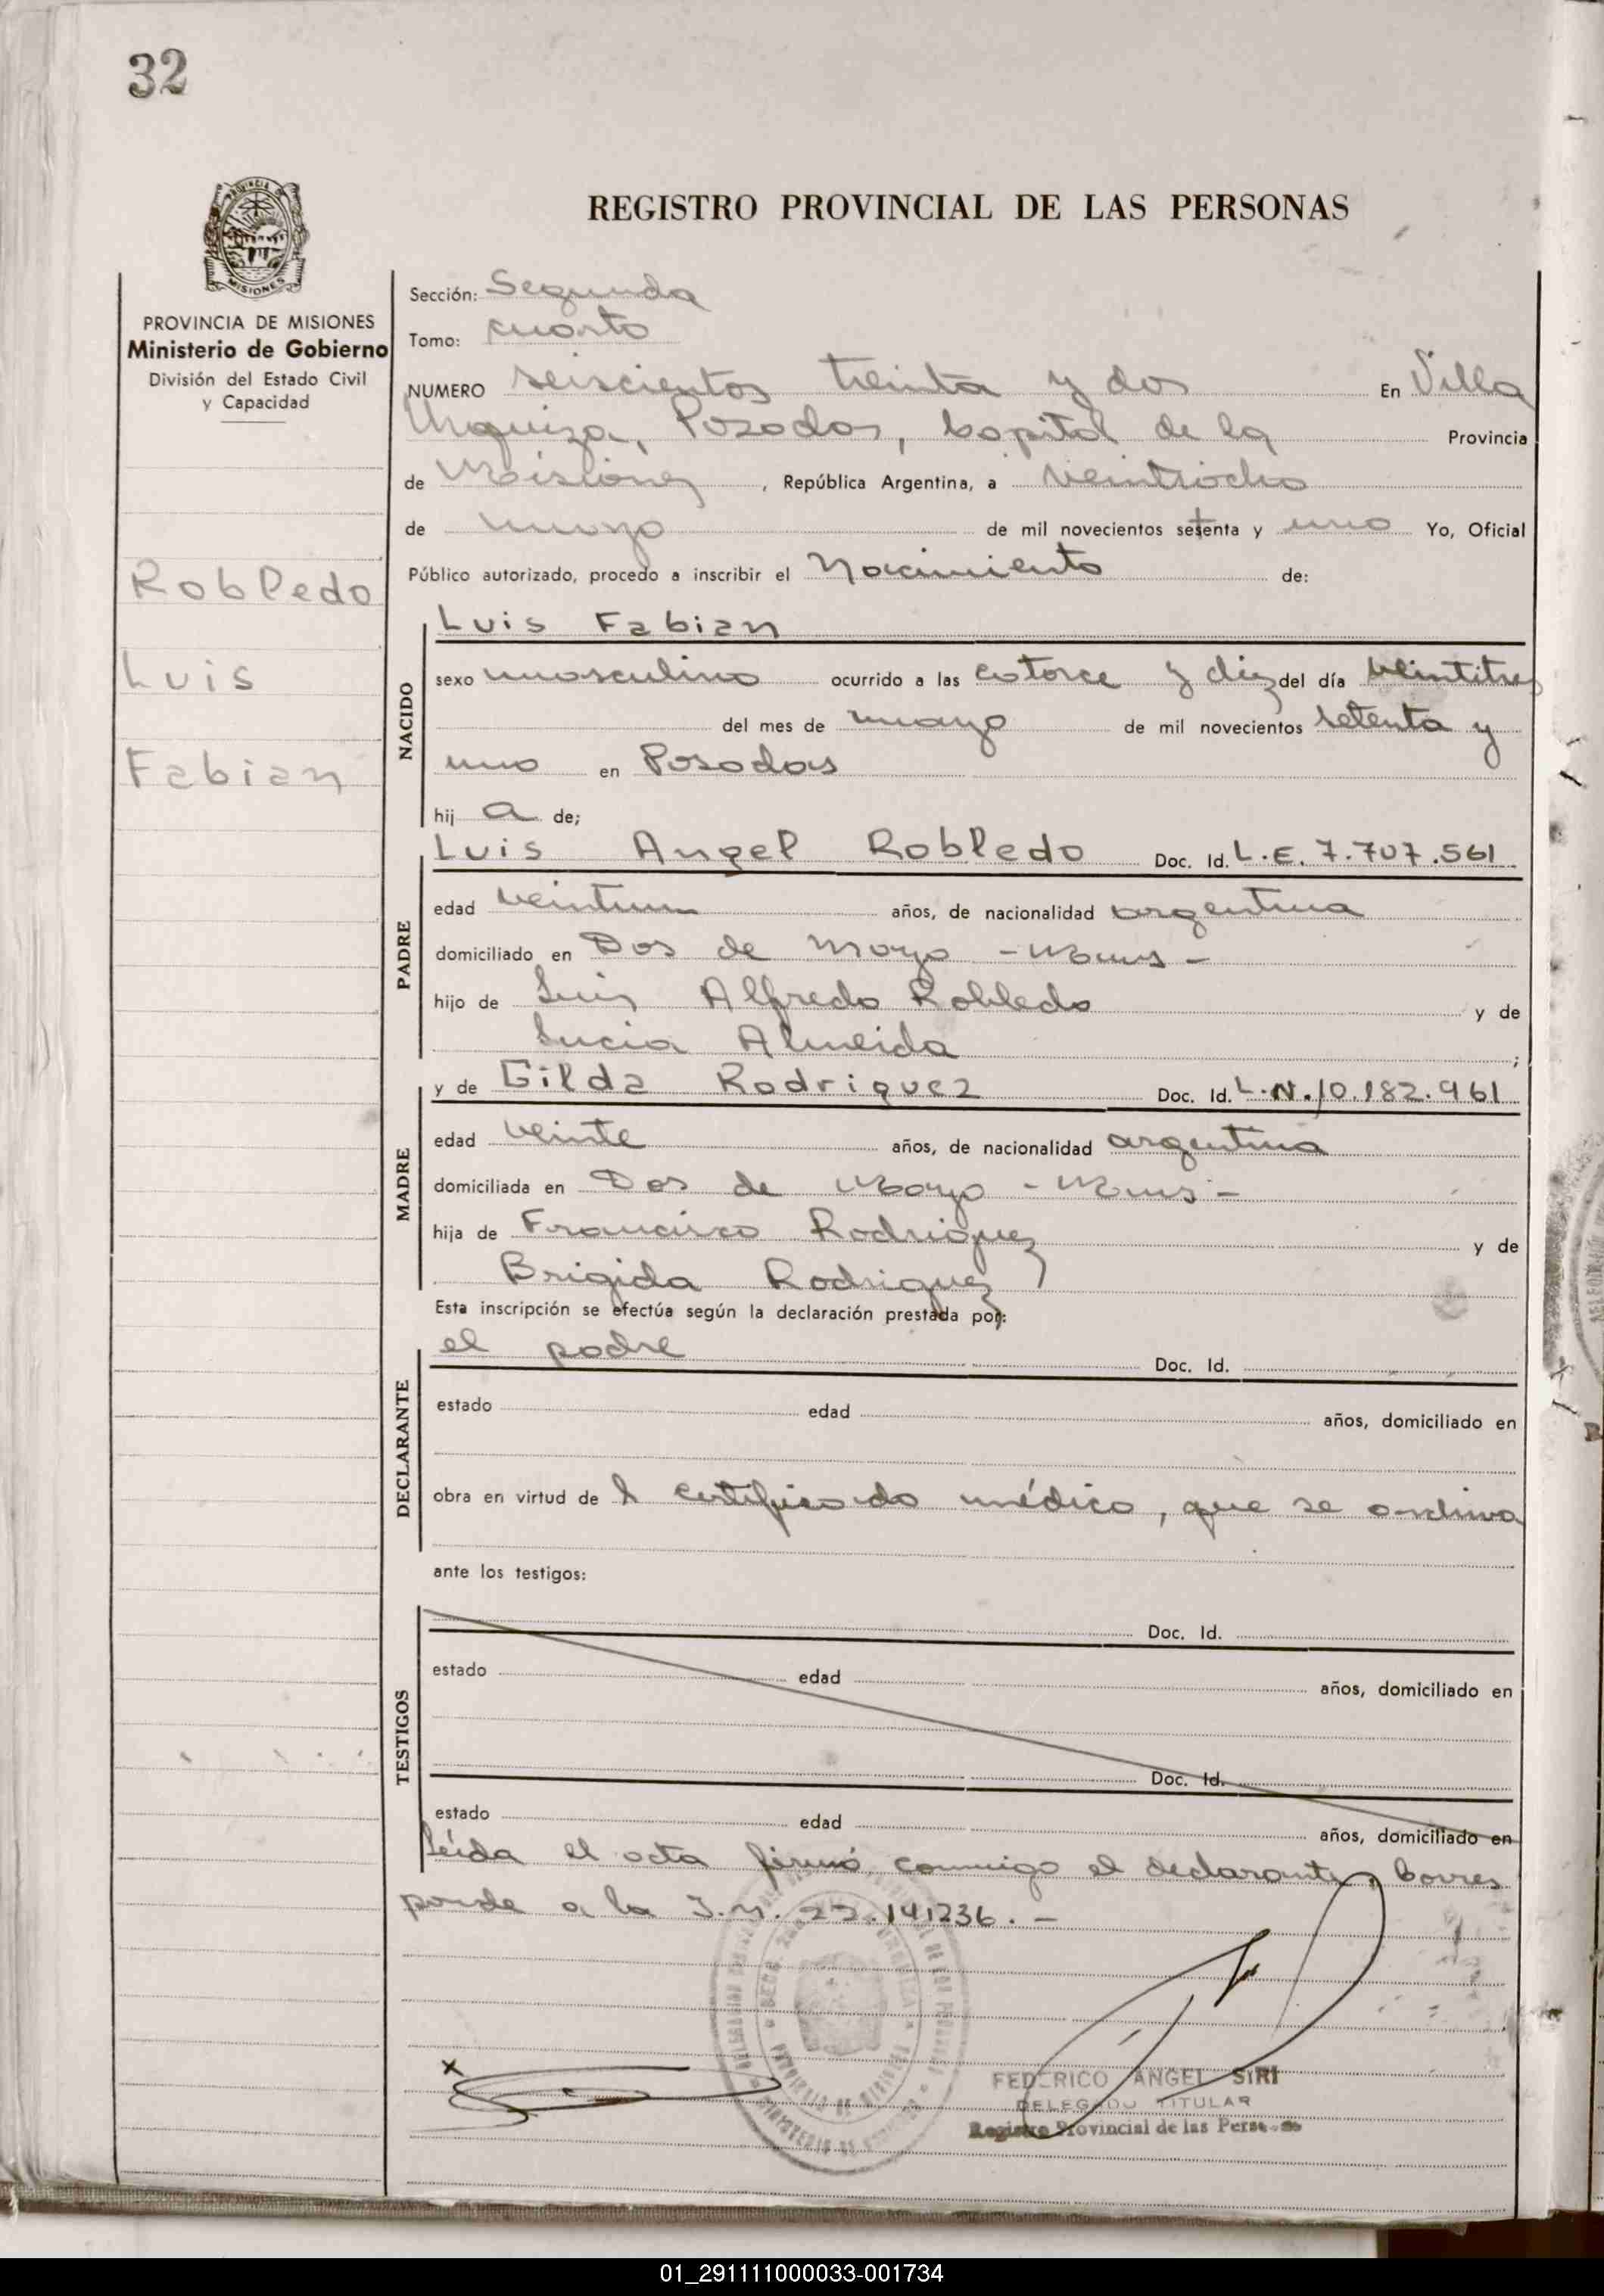 32
REGISTRO PROVINCIAL DE LAS PERSONAS
MISIONES
PROVINCIA DE MISIONES
Ministerio de Gobierno
División del Estado Civil
y Capacidad
Robledo
Luis
Fabian
Sección: Segunda
Tomo: cuarto
NUMERO seiscientos treinta y dos En Villa
Urquiza, Posadas, Capital de la Provincia
de Misiones, República Argentina, a veintiocho
de mayo de mil novecientos setenta y uno Yo, Oficial
Público autorizado, procedo a inscribir el Nacimiento de:
NACIDO
Luis Fabian
sexo masculino ocurrido a las catorce y diez del día veintitres
del mes de mayo de mil novecientos setenta y
uno en Posadas
hij a de;
PADRE
Luis Angel Robledo Doc. Id. L.E. 7.707.561
edad veintiun años, de nacionalidad argentina
domiciliado en Dos de Mayo - Mnes -
hijo de Luis Alfredo Robledo y de
Lucia Almeida ;
MADRE
y de Gilda Rodriguez Doc. Id. L.N. 10.182.961
edad veinte años, de nacionalidad argentina
domiciliada en Dos de Mayo - Mnes -
hija de Francisco Rodriguez y de
Brigida Rodriguez
Esta inscripción se efectúa según la declaración prestada por:
DECLARANTE
el padre Doc. Id.
estado edad años, domiciliado en
obra en virtud de l certificado médico, que se archiva
ante los testigos:
TESTIGOS
Doc. Id.
estado edad años, domiciliado en
Doc. Id.
estado edad años, domiciliado en
Leída el acta firmó conmigo el declarante, Corres
ponde a la I.N. 22.141236. -
x
FEDERICO ANGEL SIRI
DELEGADO TITULAR
Registro Provincial de las Personas
01_291111000033-001734